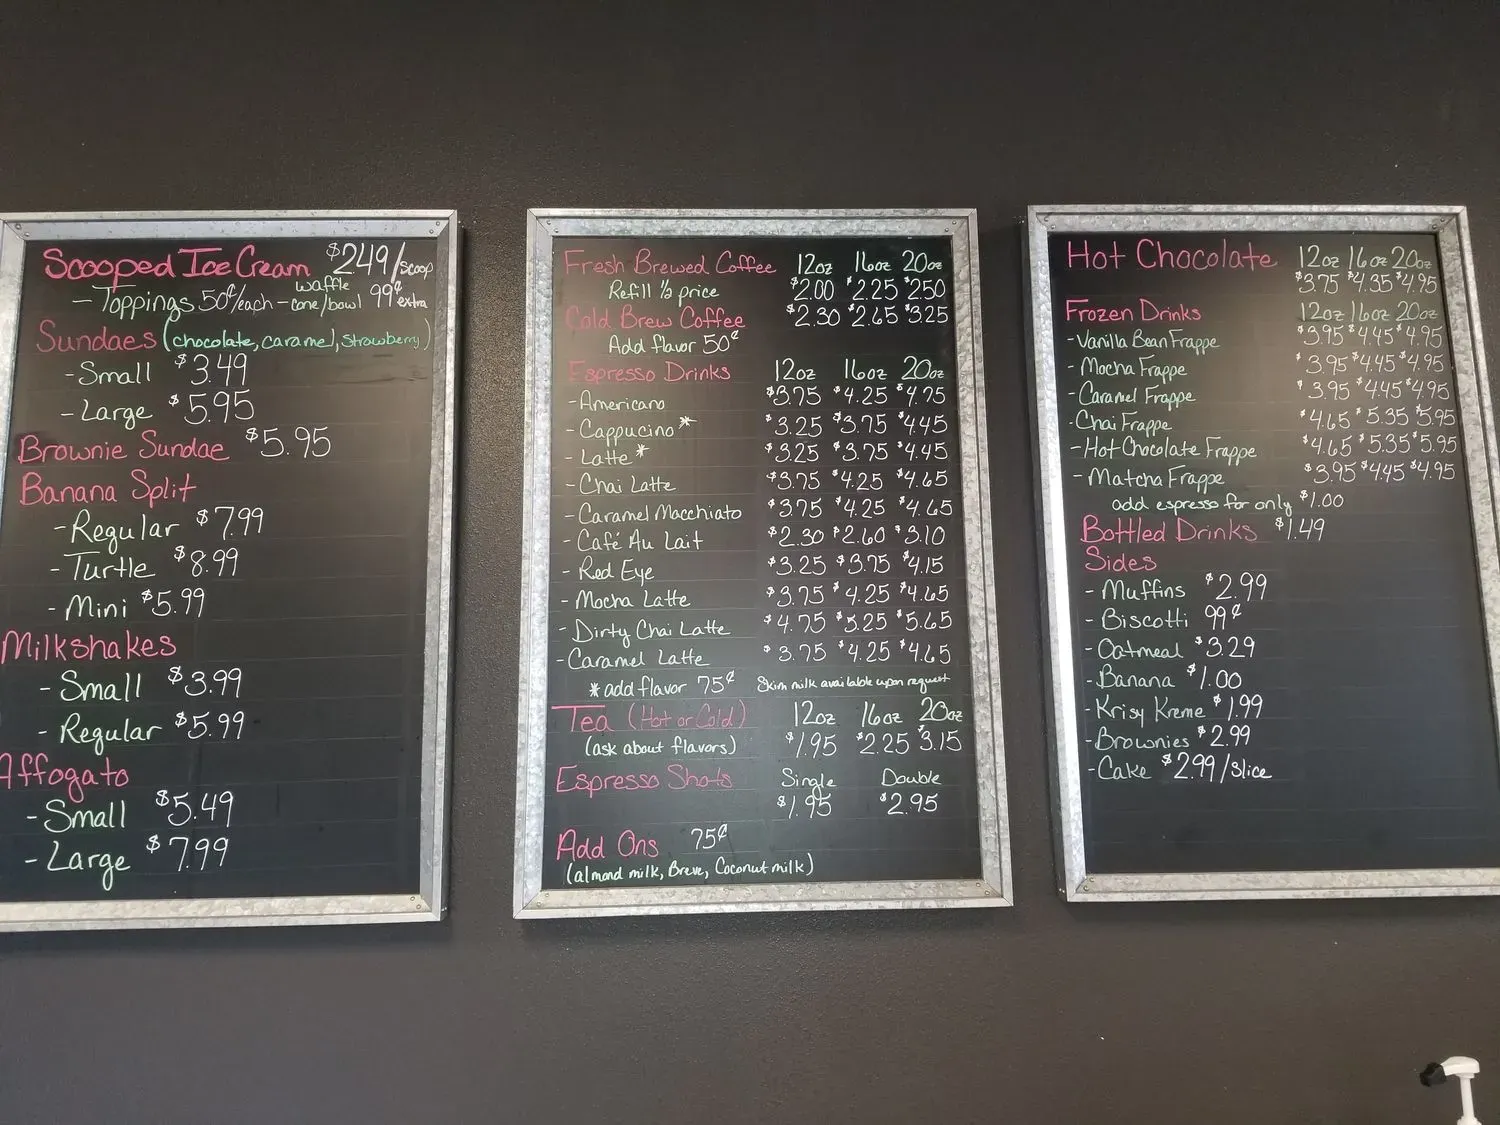 Scooped Ice Cream $2.49/scoop
- Toppings 50¢/each - waffle cone/bowl 99¢ extra
Sundaes (chocolate, caramel, strawberry)
- Small $3.49
- Large $5.95
Brownie Sundae $5.95
Banana Split
- Regular $7.99
- Turtle $8.99
- Mini $5.99
Milkshakes
- Small $3.99
- Regular $5.99
Affogato
- Small $5.49
- Large $7.99
Fresh Brewed Coffee 12oz 16oz 20oz
Refill ½ price $2.00 $2.25 $2.50
Cold Brew Coffee $2.30 $2.65 $3.25
Add flavor 50¢
Espresso Drinks 12oz 16oz 20oz
- Americano $3.75 $4.25 $4.75
- Cappucino* $3.25 $3.75 $4.45
- Latte* $3.25 $3.75 $4.45
- Chai Latte $3.75 $4.25 $4.65
- Caramel Macchiato $3.75 $4.25 $4.65
- Café Au Lait $2.30 $2.60 $3.10
- Red Eye $3.25 $3.75 $4.15
- Mocha Latte $3.75 $4.25 $4.65
- Dirty Chai Latte $4.75 $5.25 $5.65
- Caramel Latte $3.75 $4.25 $4.65
* add flavor 75¢ Skim milk available upon request
Tea (Hot or Cold) 12oz 16oz 20oz
(ask about flavors) $1.95 $2.25 $3.15
Espresso Shots Single Double
$1.95 $2.95
Add Ons 75¢
(almond milk, Breve, Coconut milk)
Hot Chocolate 12oz 16oz 20oz
$3.75 $4.35 $4.95
Frozen Drinks 12oz 16oz 20oz
- Vanilla Bean Frappe $3.95 $4.45 $4.95
- Mocha Frappe $3.95 $4.45 $4.95
- Caramel Frappe $3.95 $4.45 $4.95
- Chai Frappe $4.65 $5.35 $5.95
- Hot Chocolate Frappe $4.65 $5.35 $5.95
- Matcha Frappe $3.95 $4.45 $4.95
add espresso for only $1.00
Bottled Drinks $1.49
Sides
- Muffins $2.99
- Biscotti 99¢
- Oatmeal $3.29
- Banana $1.00
- Krisy Kreme $1.99
- Brownies $2.99
- Cake $2.99/slice